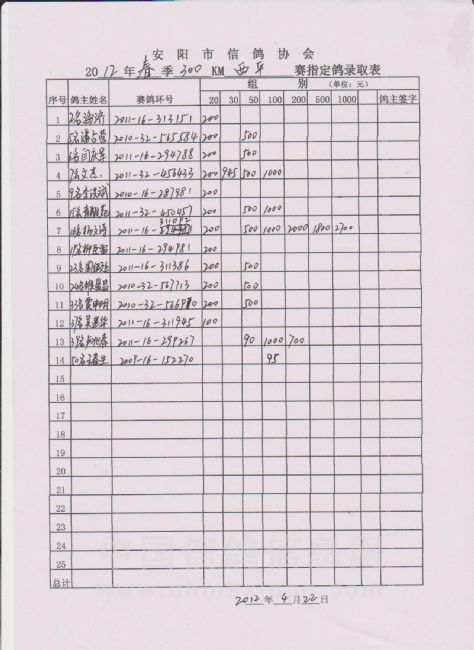 安阳市信鸽协会
2012年春季300KM西华赛指定鸽录取表
序号 鸽主姓名 赛鸽环号 组别 (单位:元) 鸽主签字
20 30 50 100 200 500 1000
1 2011-16-313151 200
2 2010-32-565584 200 500
3 2011-16-294788 200 500
4 2011-32-456433 200 945 500 1000
5 2010-16-287981 200
6 2011-32-450457 200 500 1000
311092
7 2011-16- 200 500 1000 2000 1800 2700
8 2011-16-294981 200
9 2011-16-311386 200 500
10 2010-32-567713 200 500
11 2010-32- 200 500
12 2011-16-311945 100
13 2011-16-299267 90 1000 700
14 2009-16-152270 95
15
16
17
18
19
20
21
22
23
24
25
总计
2012年4月22日